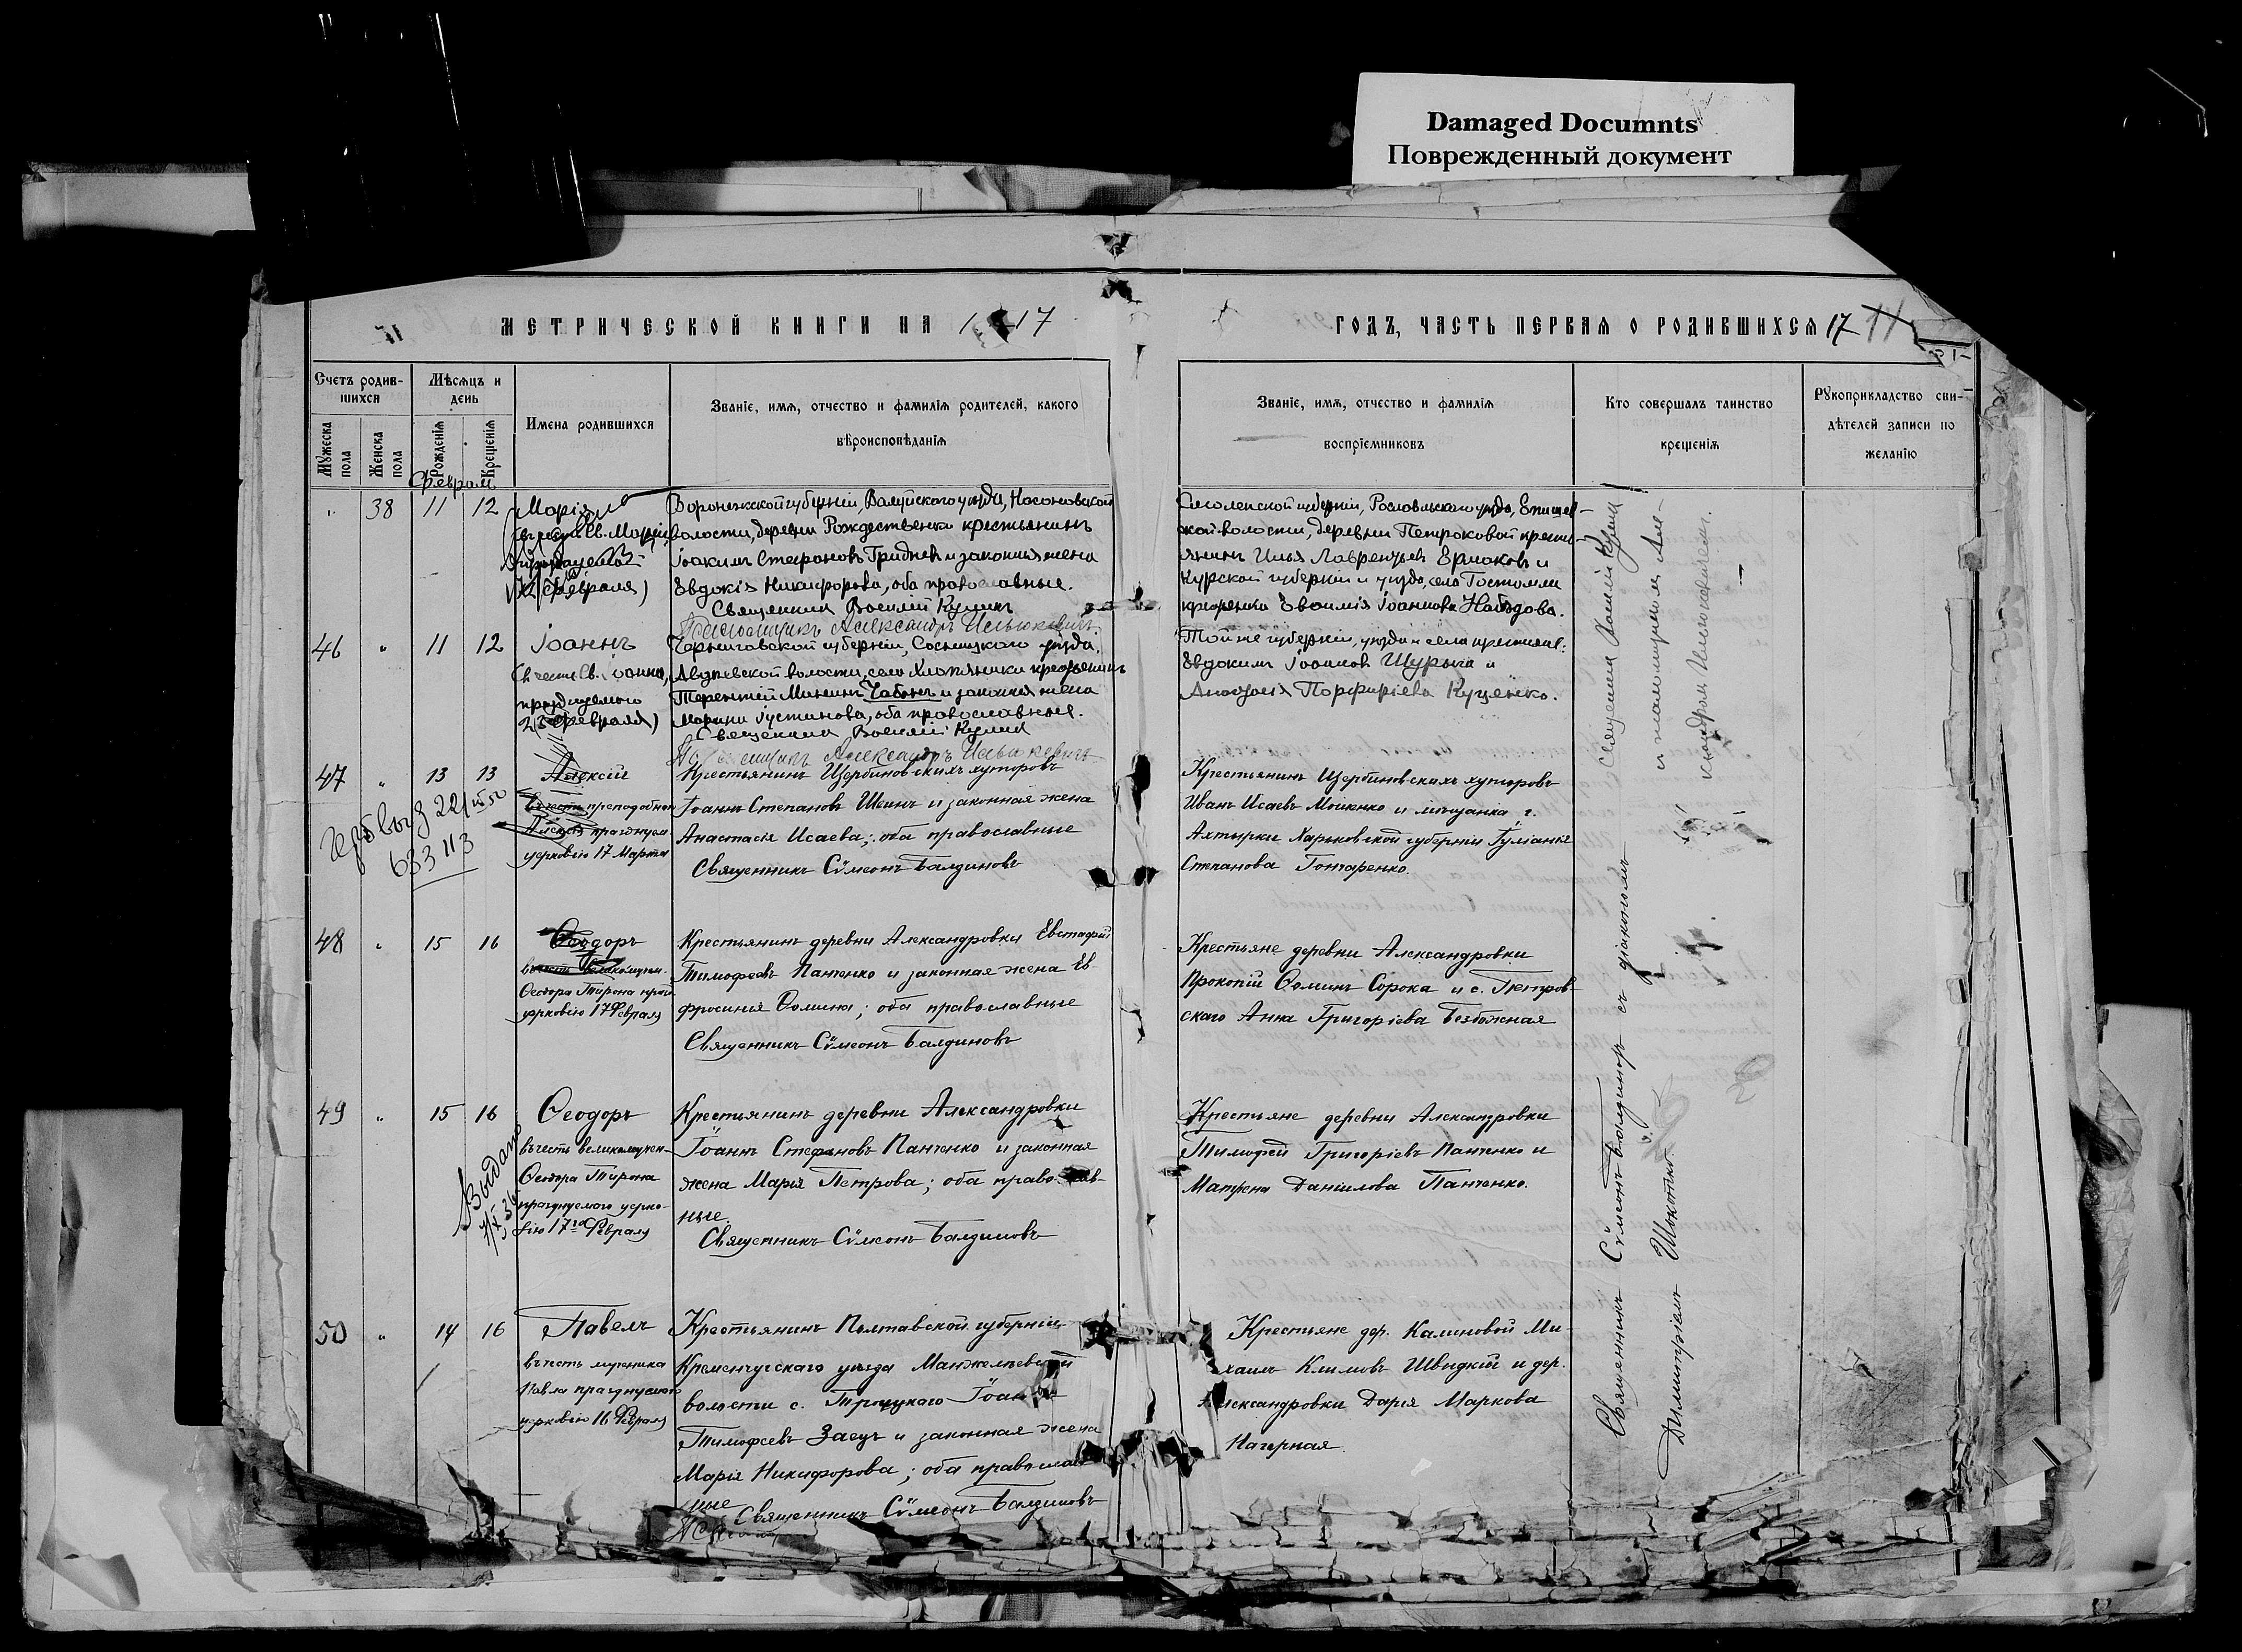 Damaged Documnts
Поврежденный документ
МЕТРИЧЕСКОЙ КНИГИ НА 1 17
ГОДЪ, ЧАСТЬ ПЕРВАЯ О РОДИВШИХСЯ 17
Счетъ родив-
шихся
Мѣсяцъ и
день
Мужеска пола
Женска пола
Рожденія
Крещенія
Имена родившихся
Званіе, имя, отчество и фамилія родителей, какого
вѣроисповѣданія
Званіе, имя, отчество и фамилія
воспріемниковъ
Кто совершалъ таинство
крещенія
Рукоприкладство сви-
дѣтелей записи по
желанію
38 11 12
Марія
Февраля)
Воронежской губерніи, Валуйского уѣзда, Насоновской
волости, деревни Рождественки крестьянинъ
Іоакимъ Стефановъ Гридневъ и законная жена
Евдокія Никифорова, оба православные.
Священникъ Василій
Александръ
Смоленской губерніи, Рославльского уѣзда,
волости, деревни Петроковой кресть-
янинъ Илья Лаврентьевъ Ермаковъ и
Курской губерніи и уѣзда, села Гостомли
крестьянка Евфимія Іоаннова
46 " 11 12
Іоаннъ
празднуемого
Февраля)
Черниговской губерніи, Сосницкого уѣзда,
волости, село крестьянинъ
Терентій Мининъ Чабанъ и законная жена
Марина Іустинова, оба православные.
Священникъ Василій
Александръ
Той же губерніи, уѣзда и села
Евдокимъ Іоанновъ Щурыга и
Анастасія Порфиріева Куценко.
47 " 13 13
Алексій
въ честь преподобнаго
Алексія празднуем.
церковію 17 Марта
633 113
Крестьянинъ Щербиновскихъ хуторовъ
Іоаннъ Степановъ Шеинъ и законная жена
Анастасія Исаева; оба православные
Священникъ Сѵмеонъ Балдиновъ
Крестьянинъ Щербиновскихъ хуторовъ
Иванъ Исаевъ Мошенко и мѣщанка г.
Ахтырки Харьковской губерніи Іуліанія
Степанова Гончаренко.
48 " 15 16
Ѳеодоръ
въ честь великомучен.
Ѳеодора Тирона праз.
церковію 17 Февраля
Крестьянинъ деревни Александровки Евстафій
Тимофеевъ Панченко и законная жена Ев-
фросинія Ѳомина; оба православные
Священникъ Сѵмеонъ Балдиновъ
Крестьяне деревни Александровки
Прокопій Ѳоминъ Сорока и с. Петров-
скаго Анна Григоріева Безбожная
49 " 15 16
Выдано
Ѳеодоръ
въ честь великомучен-
Ѳеодора Тирона
празднуемого церко-
вію 17го Февраля
Крестьянинъ деревни Александровки
Іоаннъ Стефановъ Панченко и законная
жена Марія Петрова; оба православ-
ные.
Священникъ Сѵмеонъ Балдиновъ
Крестьяне деревни Александровки
Тимофей Григоріевъ Панченко и
Матрена Даніилова Панченко.
50 " 14 16
Павелъ
въ честь мученика
Павла празднуемого
церковію 16 Февраля
Крестьянинъ Полтавской губерніи
Кременчугскаго уѣзда
волости с. Троицкаго Іоаннъ
Тимофеевъ Заецъ и законная жена
Марія Никифорова; оба православ-
ные Священникъ Сѵмеонъ Балдиновъ
Крестьяне дер. Калиновой Ми-
хаилъ Климовъ Швидкій и дер.
Александровки Дарія Маркова
Нагорная.
Священникъ Василій
и псаломщикомъ Але-
ксандромъ
Священникъ Сѵмеонъ Балдиновъ съ діакономъ
Димитріемъ